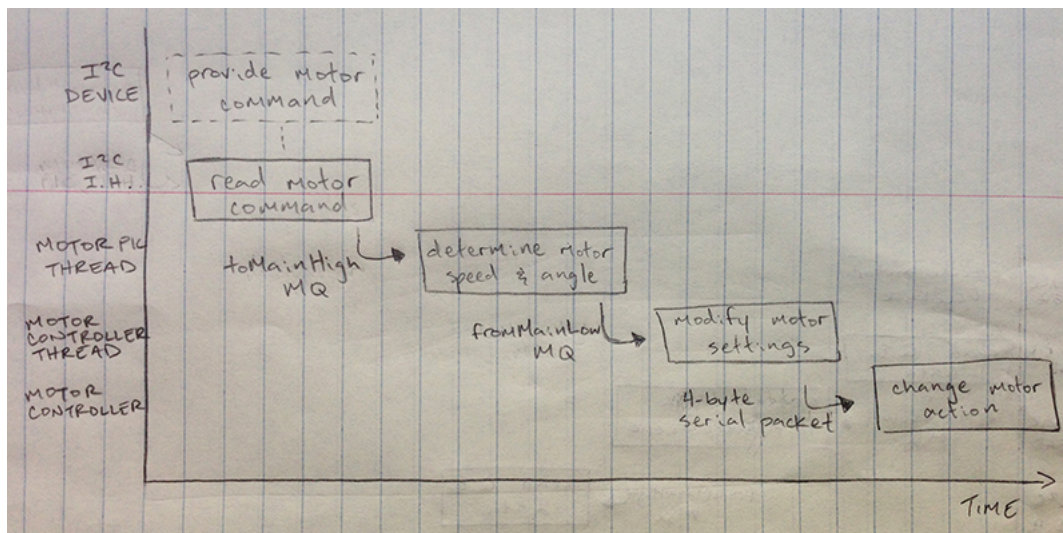 I²C
DEVICE
provide motor
command
I²C
I.H.
read motor
command
MOTOR PIC
THREAD
toMainHigh
MQ
determine motor
speed & angle
MOTOR
CONTROLLER
THREAD
fromMainLow
MQ
modify motor
settings
MOTOR
CONTROLLER
4-byte
serial packet
change motor
action
TIME